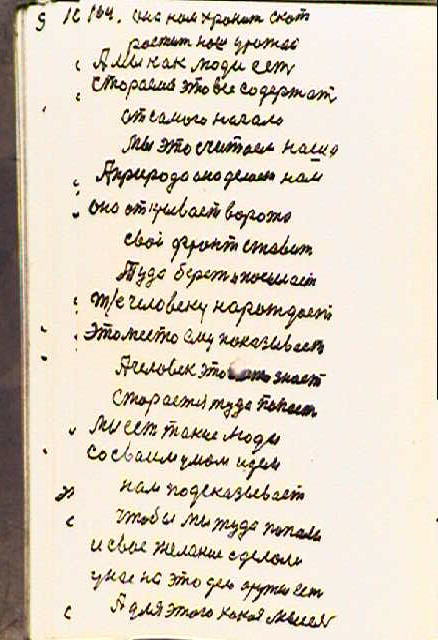 она нам хранит скот
растит наш урожай
А мы как люди есть
стараемся это все содержат
от самого начало
Мы это считаем наше
А природа она делает нам
она открывает ворота
свой фронт ставит
Туда берет и посылает
человеку нарождает
Это место ему показывает
А человек это знает
Старается туда попасть
Мы есть такие люди
Со сваим умом идем
нам подсказывает
чтобы мы туда попали
и свое желание сделали
у нас на это дело оружие есть
А для этого какая